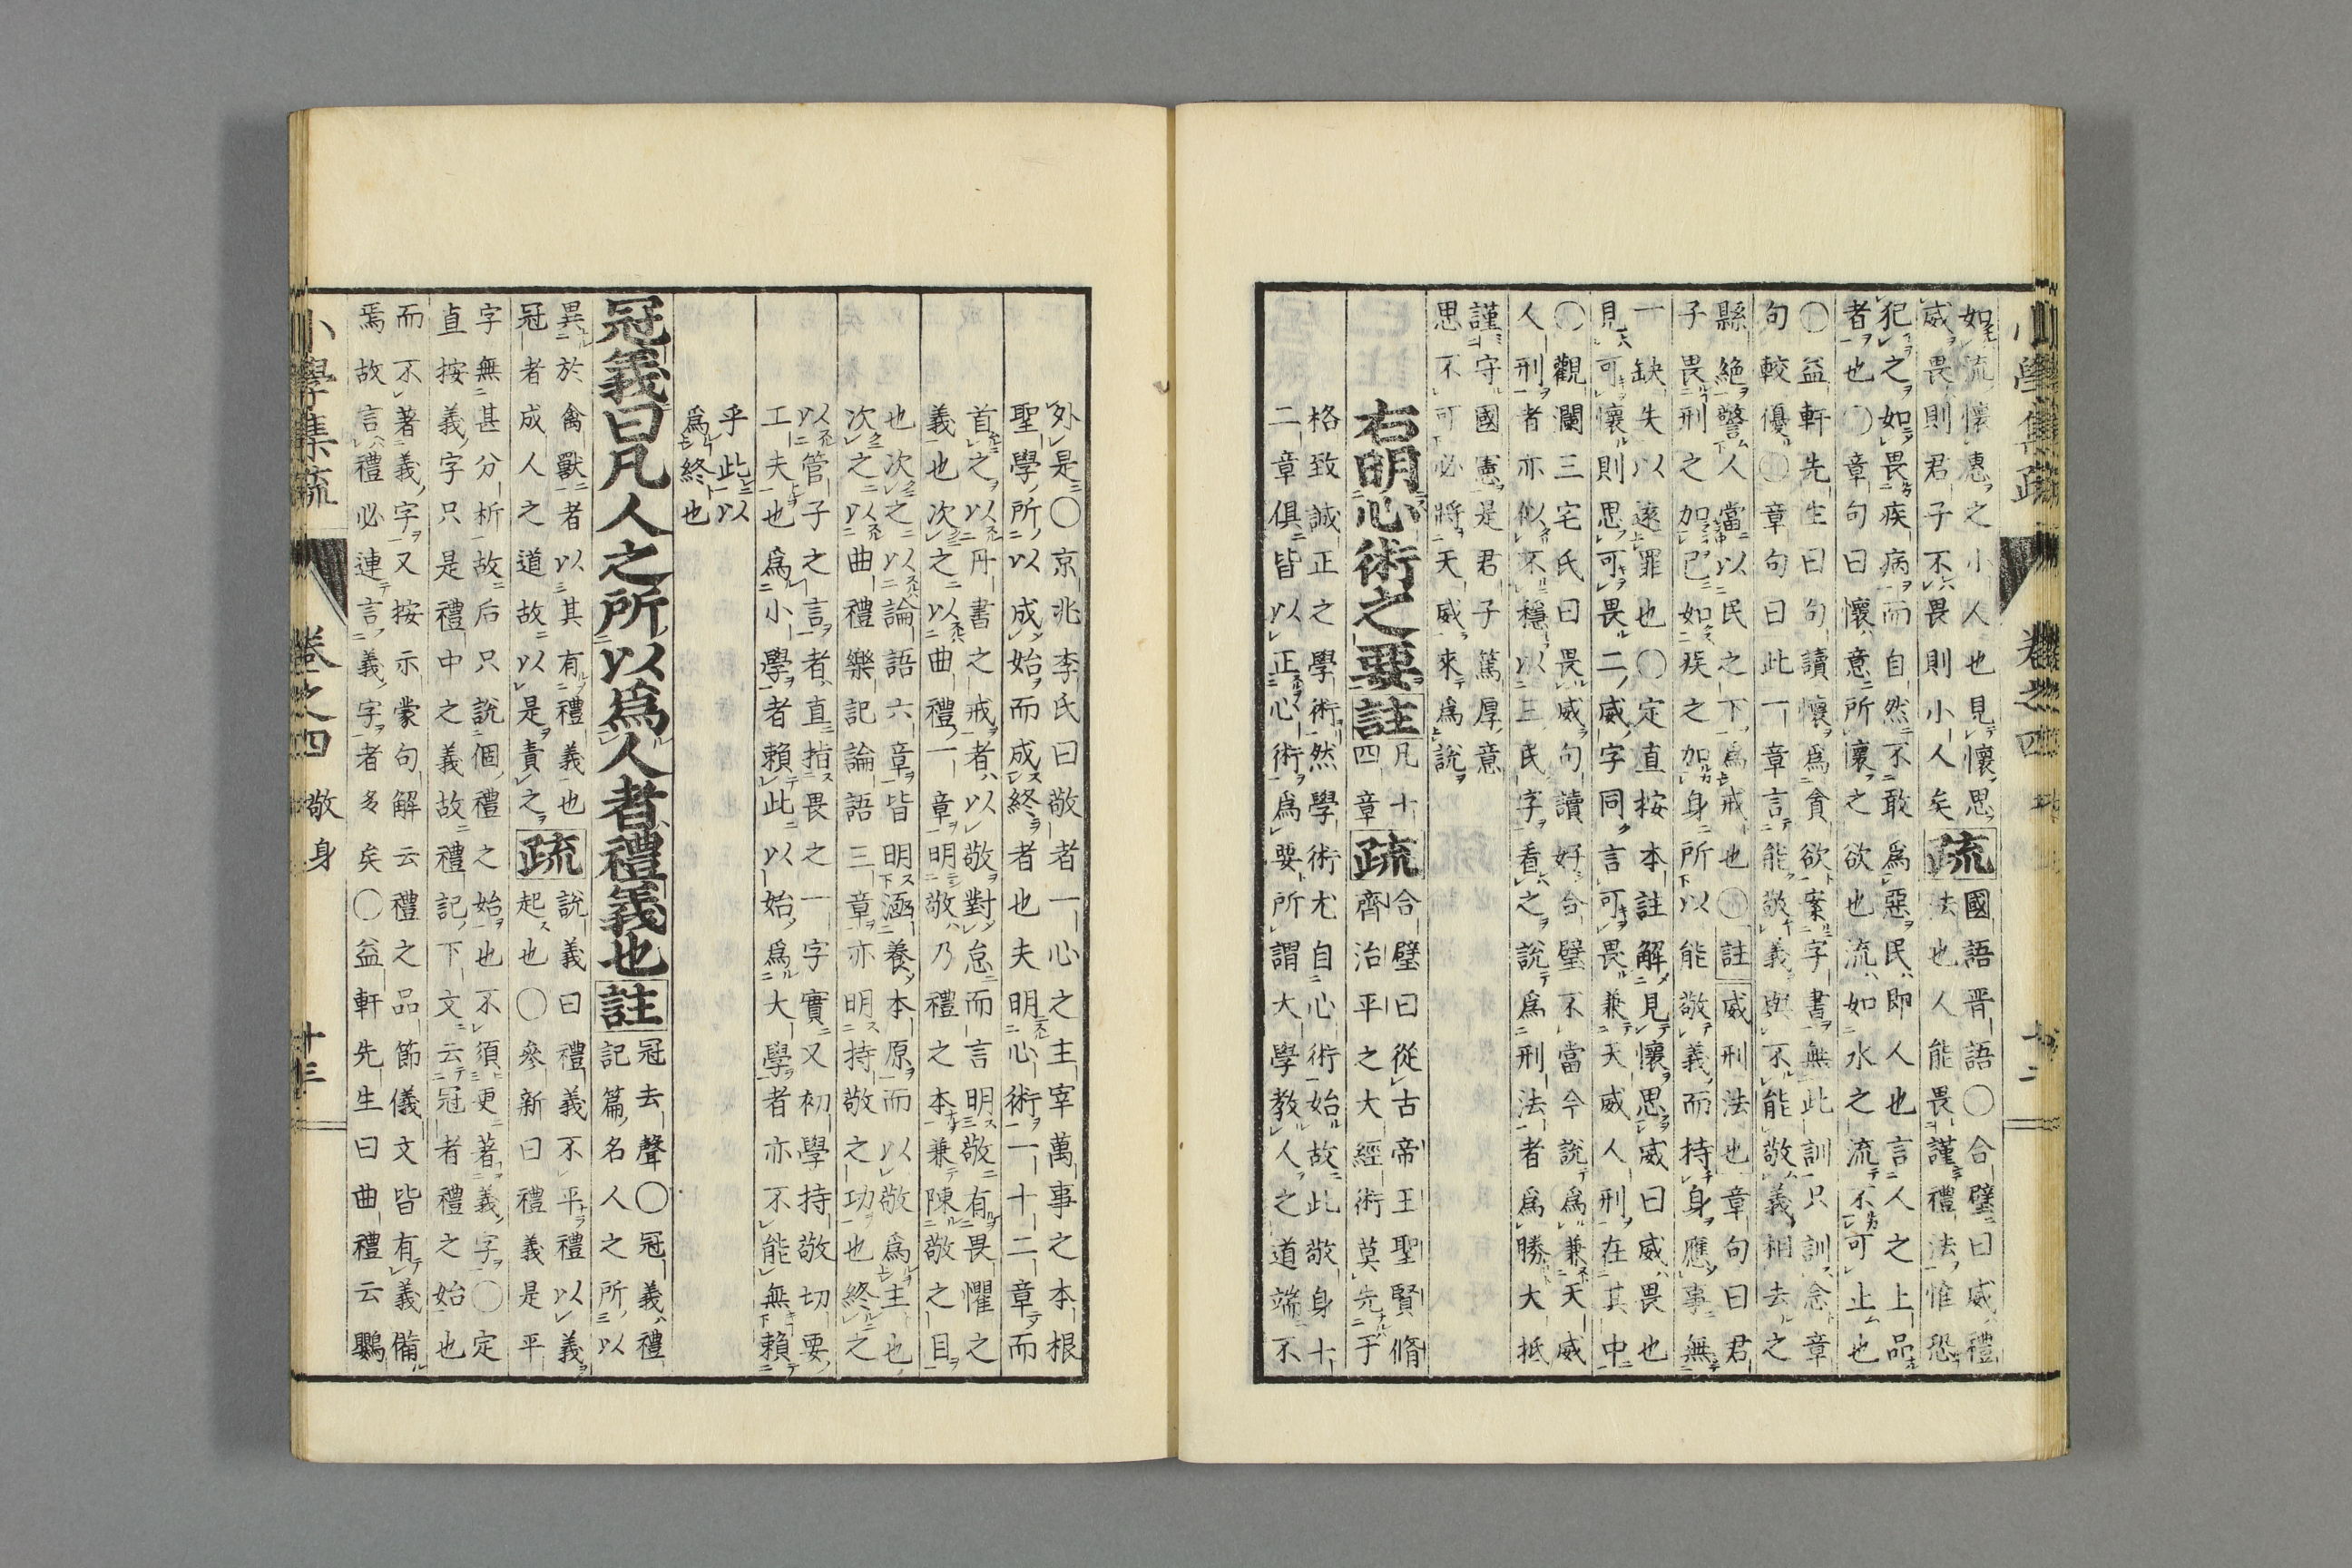 如流懷惠之小人也見懷思
威畏則君子不畏則小人矣
疏
國語晋語〇合璧曰威禮
法也人能畏謹禮法惟恐
犯之如畏疾病而自然不敢爲惡民即人也言人之上品
者也〇章句曰懷意所懷之欲也流如水之流不可止也
〇益軒先生曰句讀懷爲貪欲案字書無此訓只訓念章
句較優〇章句曰此一章言能敬義與不能敬義相去之
縣絶警人當以民之下爲戒也〇註威刑法也章句曰君
子畏刑之加已如疾之加身所以能敬義而持身應事無
一缺失以遂罪也〇定直按本註解見懷思威曰威畏也
見可懷則思可畏二威字同言可畏兼天威人刑在其中
〇觀瀾三宅氏曰畏威句讀好合璧不當今說爲兼天威
人刑者亦似不穩以三民字看之說爲刑法者爲勝大抵
謹守國憲是君子篤厚意
思不可必將天威來爲說
右明心術之要
註
凡十
四章
疏
合璧曰從古帝王聖賢脩
齊治平之大經術莫先于
格致誠正之學術然學術尤自心術始故此敬身十
二章俱皆以正心術爲要所謂大學教人之道端不
外是〇京兆李氏曰敬者一心之主宰萬事之本根
聖學所以成始而成終者也夫明心術一十二章而
首之以丹書之戒者以敬對怠而言明敬有畏懼之
義也次之以曲禮一章明敬乃禮之本兼陳敬之目
也次之以論語六章皆明涵養本原而以敬爲主也
次之以曲禮樂記論語三章亦明持敬之功也終之
以管子之言者直指畏之一字實又初學持敬切要
工夫也爲小學者賴此以始爲大學者亦不能無賴
乎此以
爲終也
冠義曰凡人之所以爲人者禮義也
註
冠去聲〇冠義禮
記篇名人之所以
異於禽獸者以其有禮義也
冠者成人之道故以是責之
疏
說義曰禮義不平禮以義
起也〇參新曰禮義是平
字無甚分析故后只說個禮之始也不須更著義字〇定
直按義字只是禮中之義故禮記下文云冠者禮之始也
而不著義字又按示蒙句解云禮之品節儀文皆有義備
焉故言禮必連言義字者多矣〇益軒先生曰曲禮云鸚
小學集疏
卷之四
敬身
十三
小學集疏
卷之四
十二